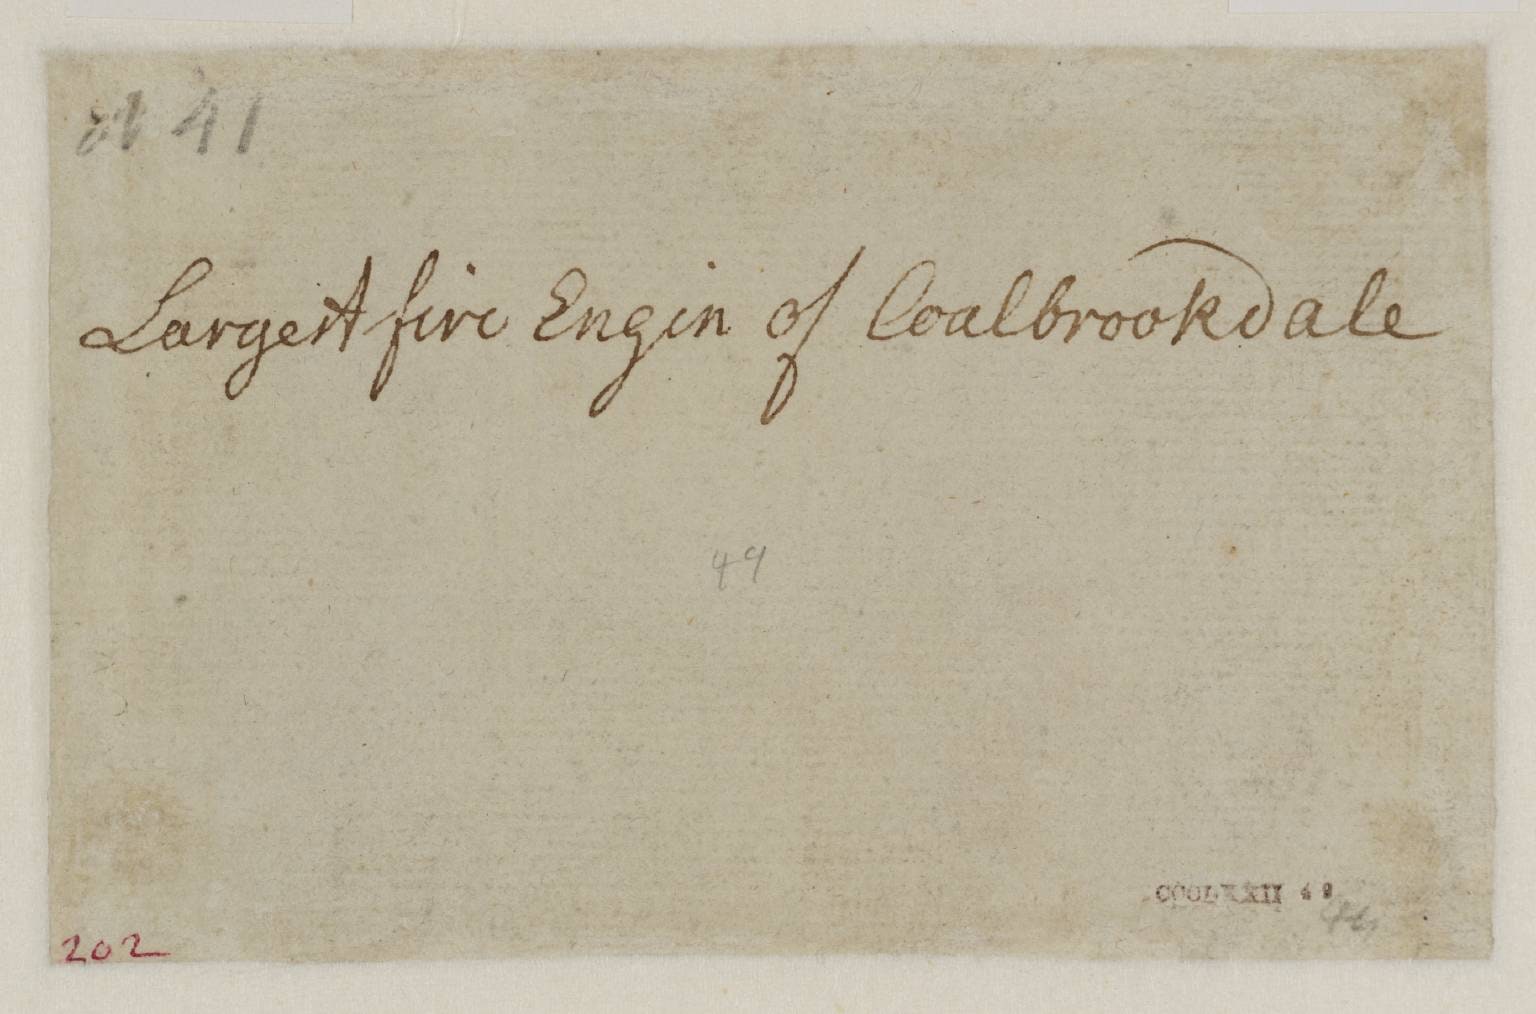 41
Largest fire Engin of Coalbrookdale
49
CCCLXXII 49
202